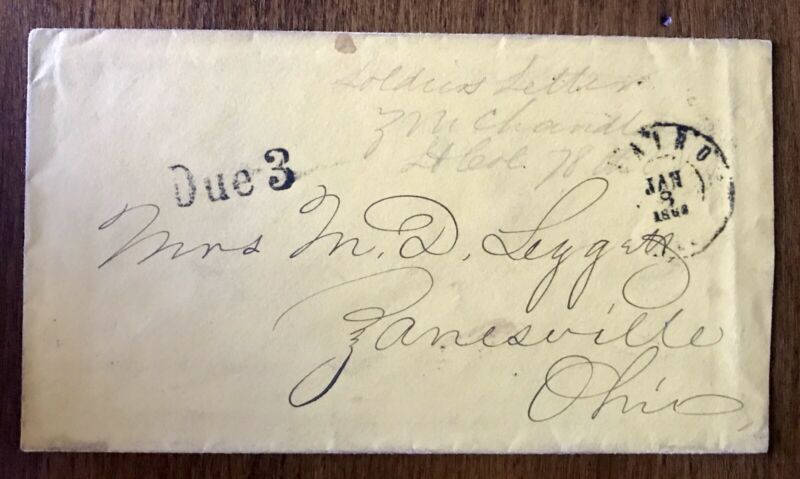 Soldiers Letter
Z M Chandl
Lt Col 78
Due 3
AIRO
JAN
8
1863
Mrs M. D. Leggett
Zanesville
Ohio